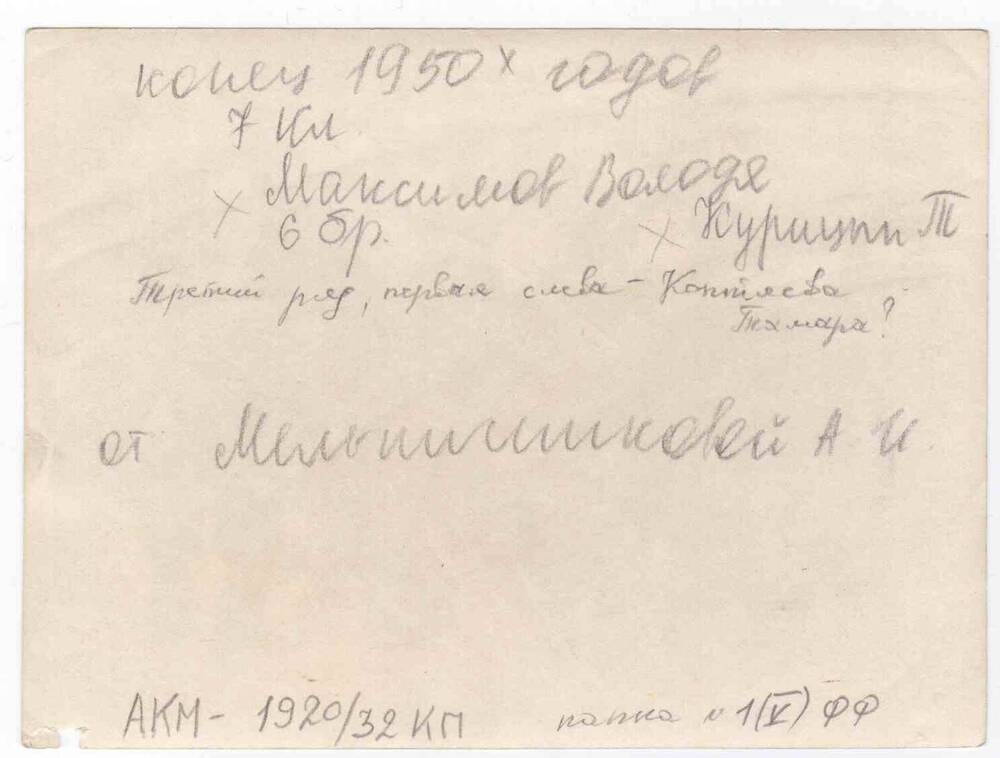 конец 1950х годов
7 Кл.
Максимов Володя
х 6 бр. х Курицын Т
Третий ряд, первая слева - Коптяева
Тамара?
от Мельчишиковой А И.
АКМ- 1920/32 КП папка №1(V) ФФ